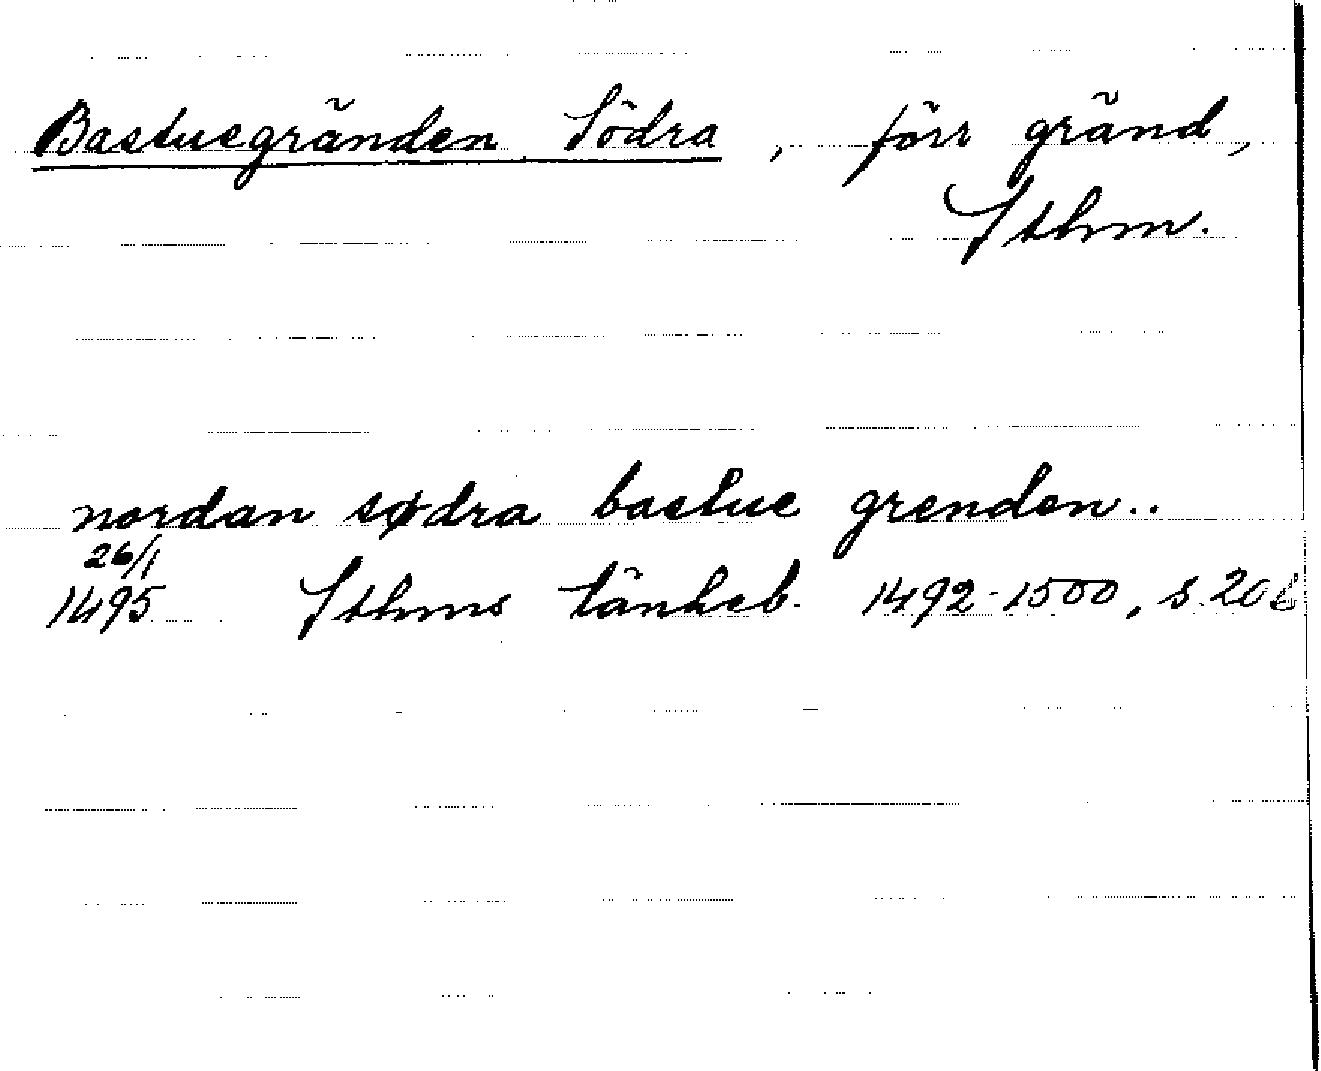 Bastuegränden Södra, förr gränd,
Sthm.
nordan sødra bastue grenden..
26/1
1495 Sthms tänkeb. 1492-1500, s.